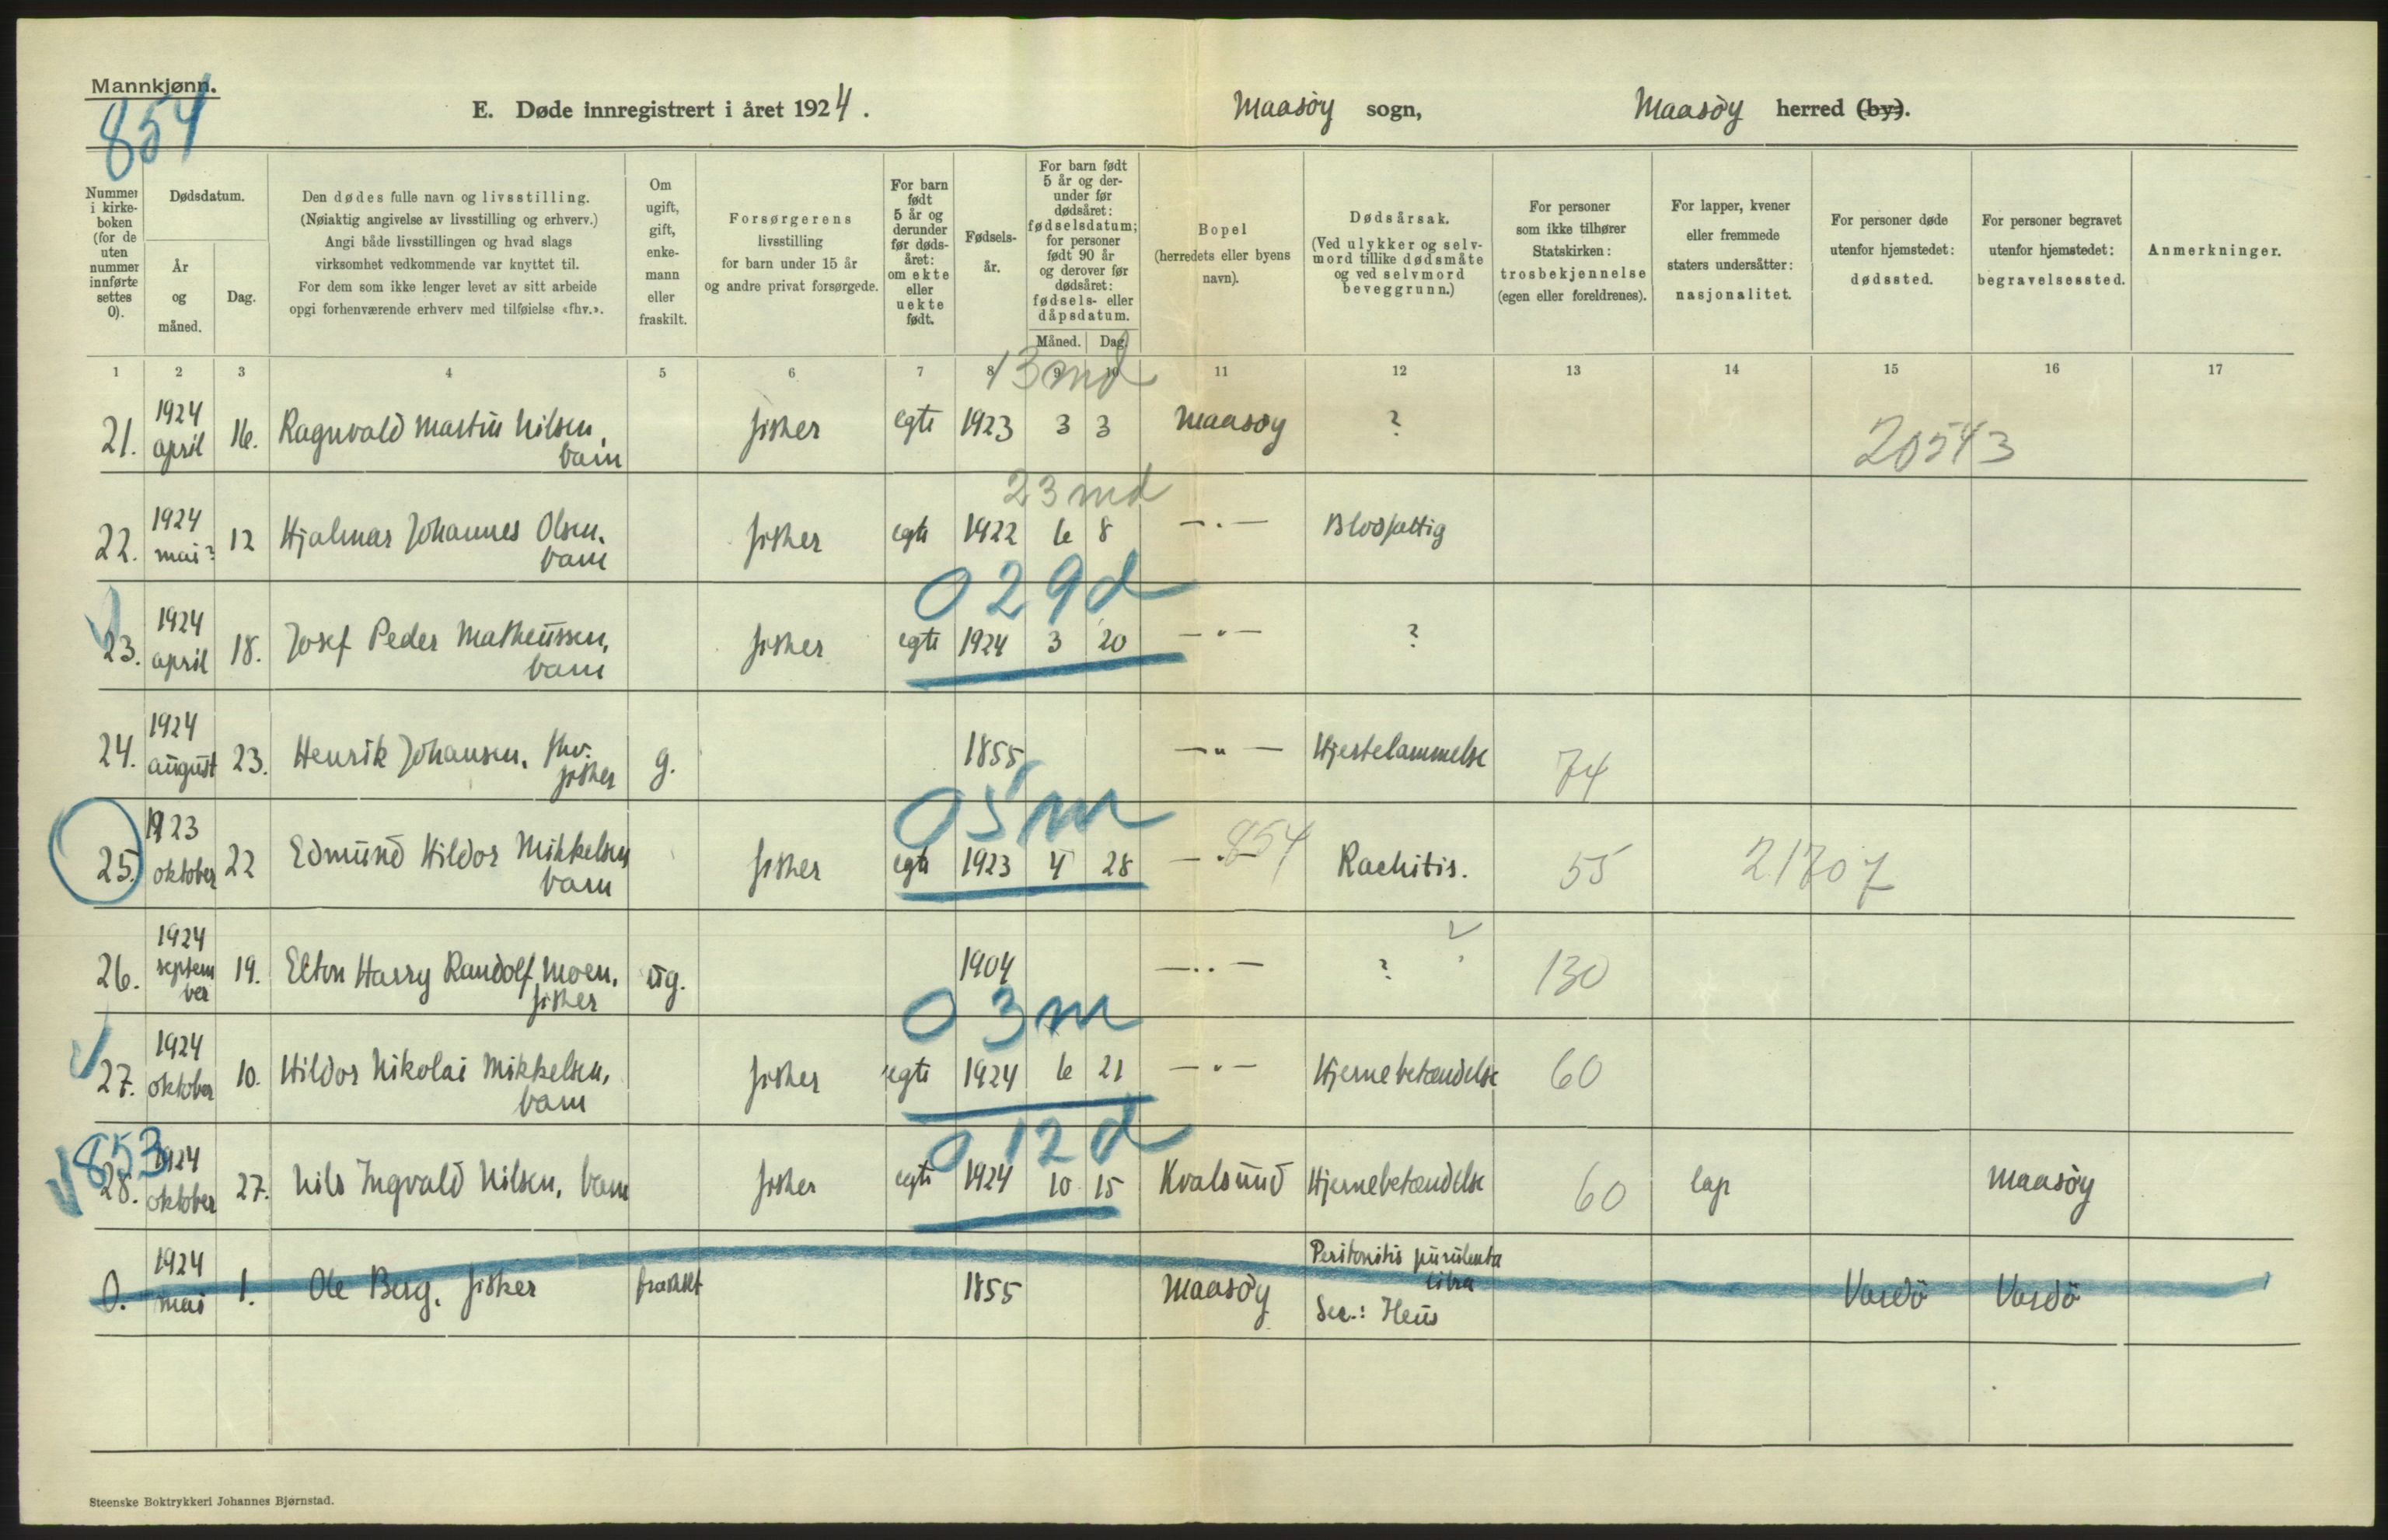 Mannkjønn.
854
E. Døde innregistrert i året 1924.
Maasöy sogn,
Maasöy herred (by).
Nummer
i kirke-
boken
(for de
uten
nummer
innførte
settes
0).
Dødsdatum.
År
og
måned.
Dag.
Den dødes fulle navn og livsstilling.
(Nøiaktig angivelse av livsstilling og erhverv.)
Angi både livsstillingen og hvad slags
virksomhet vedkommende var knyttet til.
For dem som ikke lenger levet av sitt arbeide
opgi forhenværende erhverv med tilføielse «fhv.».
Om
ugift,
gift,
enke-
mann
eller
fraskilt.
Forsørgerens
livsstilling
for barn under 15 år
og andre privat forsørgede.
For barn
født
5 år og
derunder
før døds-
året:
om ekte
eller
uekte
født.
Fødsels-
år.
For barn født
5 år og der-
under før
dødsåret:
fødselsdatum;
for personer
født 90 år
og derover før
dødsåret:
fødsels- eller
dåpsdatum.
Måned. Dag.
Bopel
(herredets eller byens
navn).
Dødsårsak.
(Ved ulykker og selv-
mord tillike dødsmåte
og ved selvmord
beveggrunn.)
For personer
som ikke tilhører
Statskirken:
trosbekjennelse
(egen eller foreldrenes).
For lapper, kvener
eller fremmede
staters undersåtter:
nasjonalitet.
For personer døde
utenfor hjemstedet:
dødssted.
For personer begravet
utenfor hjemstedet:
begravelsessted.
Anmerkninger.
1 2 3 4 5 6 7 8 9 10 11 12 13 14 15 16 17
13 md
21. 1924 april 16. Ragnvald Martin Nilsen, barn fisker egte 1923 3 3 Maasöy ? 20543
23 md
22. 1924 mai? 12 Hjalmar Johannes Olsen, barn fisker egte 1922 6 8 —·— Blodfattig
0 29 d
23. 1924 april 18. Josef Peder Matheussen, barn fisker egte 1924 3 20 —"— ?
24. 1924 august 23. Henrik Johansen, fhv. fisker g. 1855 —"— Hjertelammelse 74
0 5 m
25. 1923 oktober 22 Edmund Hildor Mikkelsen barn fisker egte 1923 4 28 —·— 854 Rachitis. 55 21707
26. 1924 september 19. Elton Harry Randolf Moen, fisker ug. 1904 —··— ? 130
0 3 m
27. 1924 oktober 10. Hildor Nikolai Mikkelsen, barn fisker egte 1924 6 21 —"— Hjernebetændelse 60
853
0 12 d
28. 1924 oktober 27. Nils Ingvald Nilsen, barn fisker egte 1924 10 15 Kvalsund Hjernebetændelse 60 lap Maasöy
0. 1924 mai 1. Ole Berg, fisker fraskilt 1855 Maasöy Peritonitis purulenta
Sec.: Ileus Vardö Vardö
Steenske Boktrykkeri Johannes Bjørnstad.